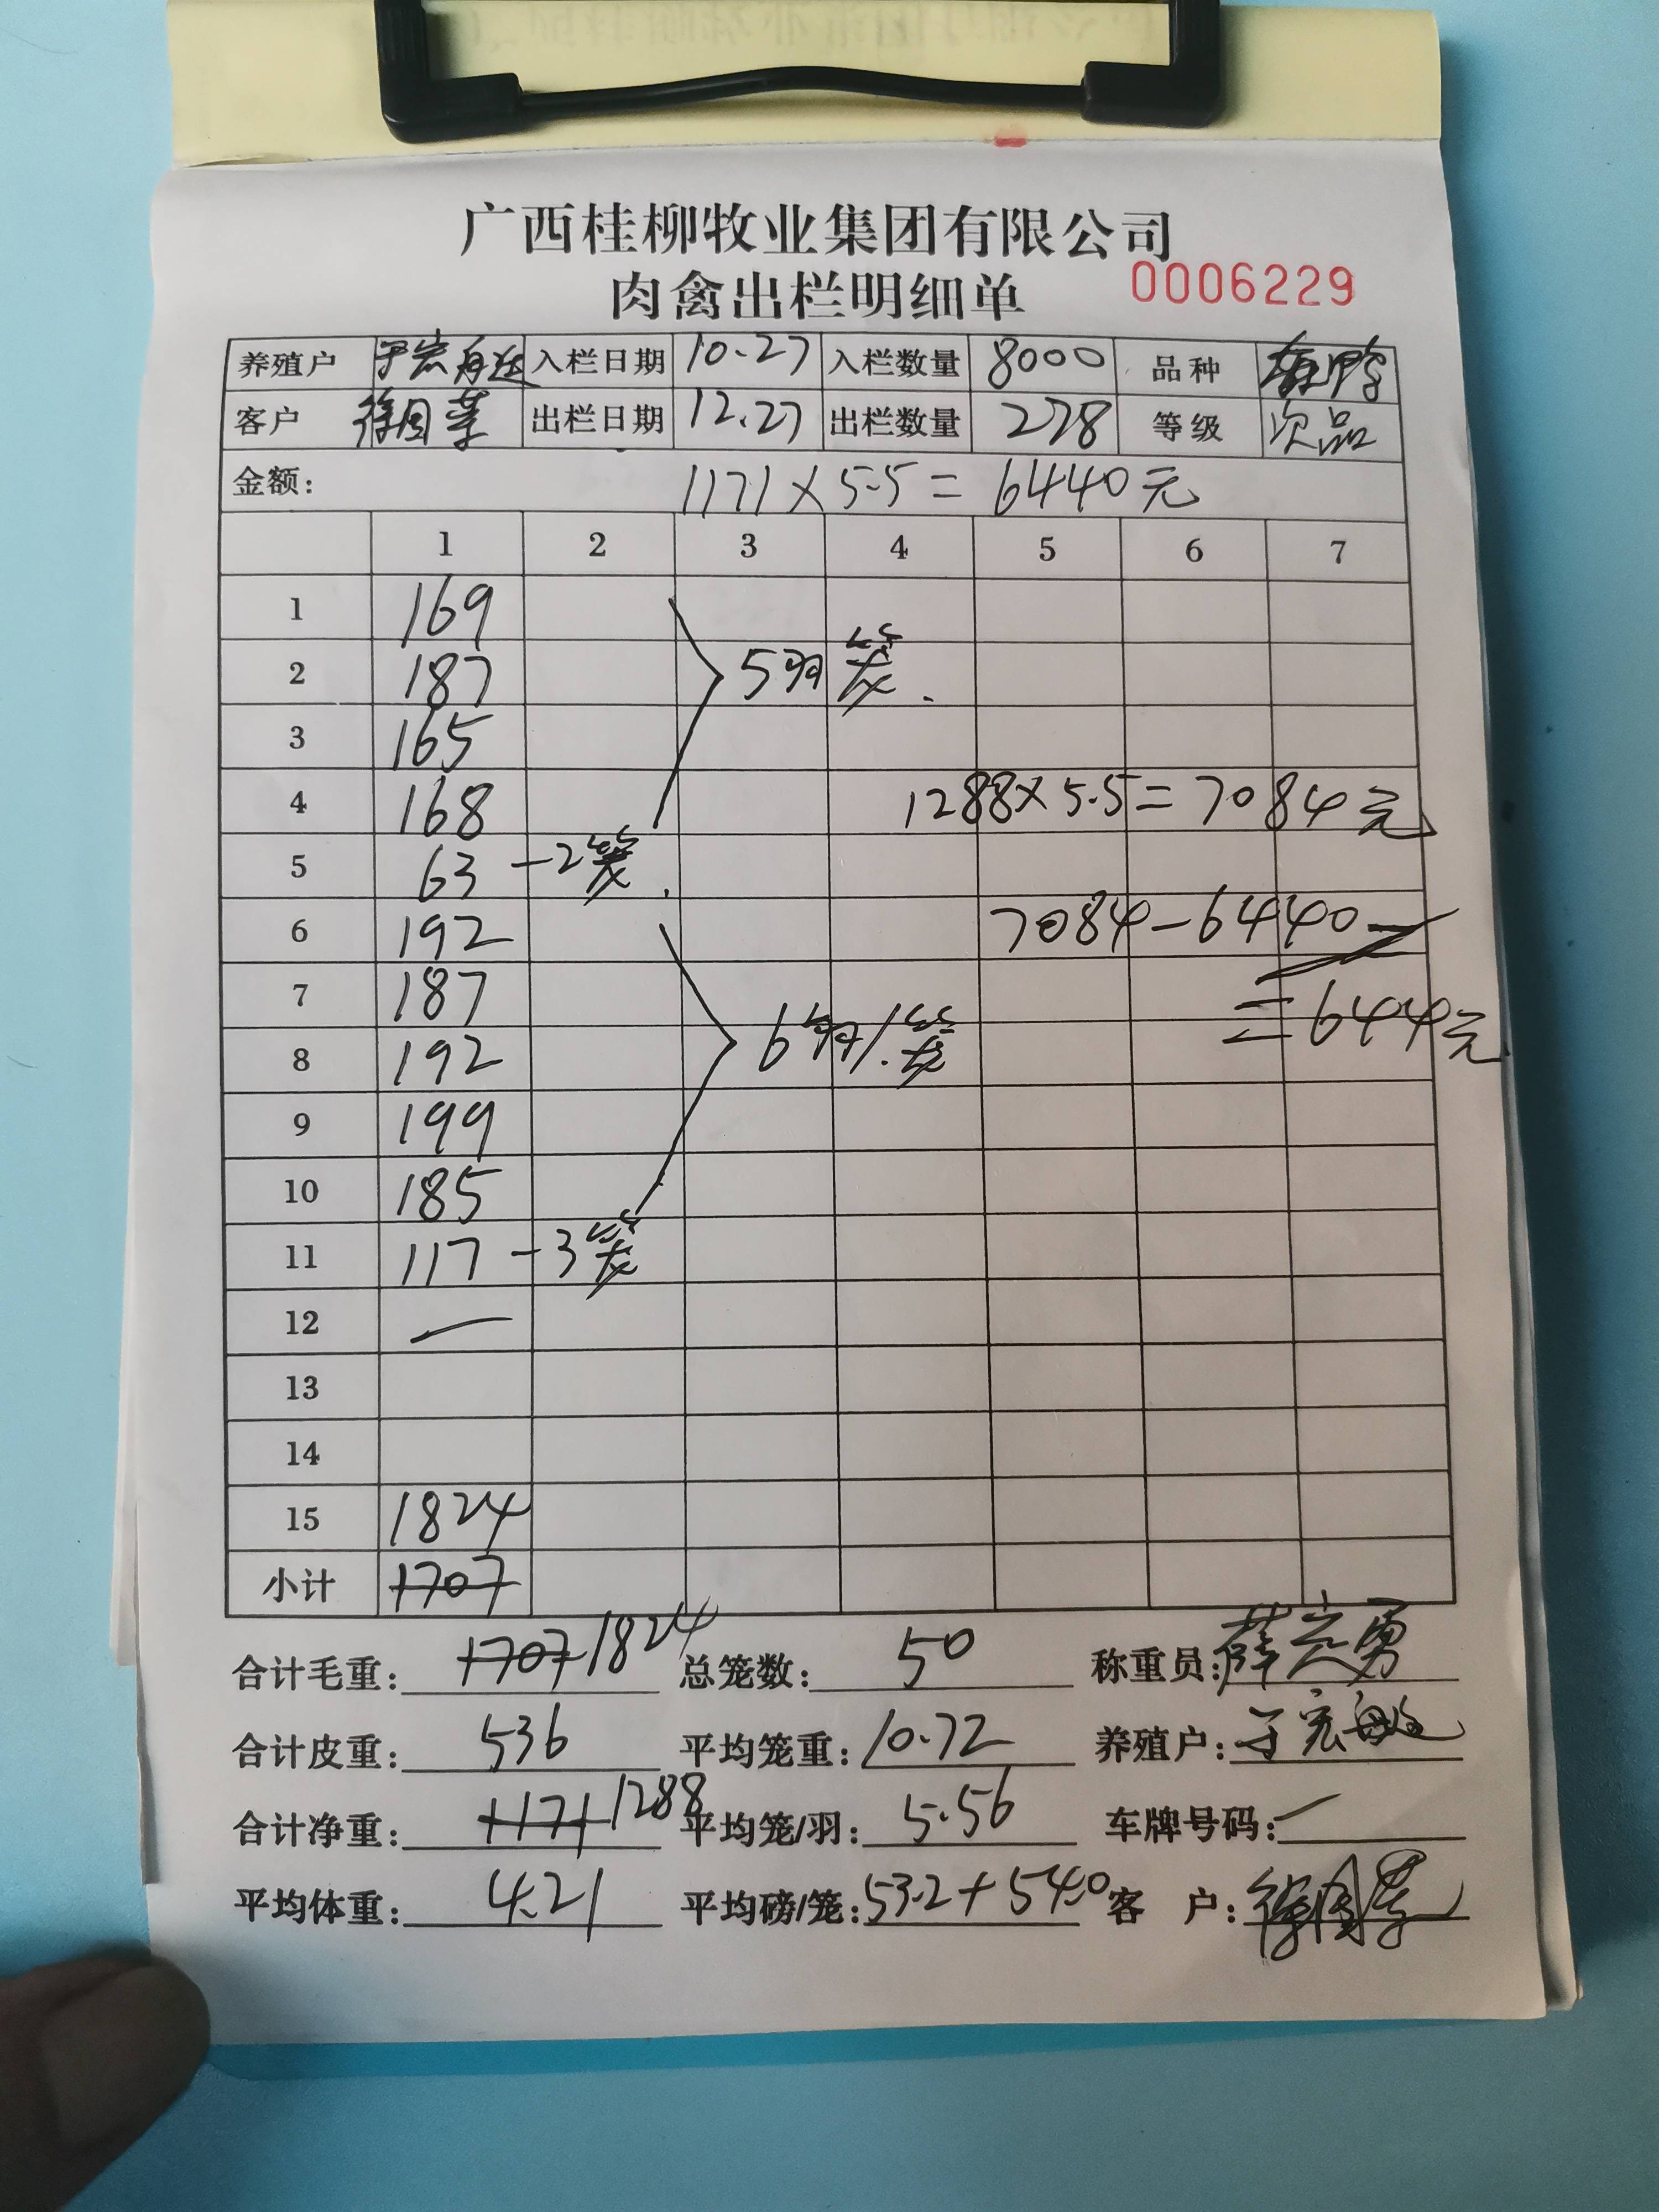 广西桂柳牧业集团有限公司
肉禽出栏明细单 0006229
养殖户 入栏日期 10.27 入栏数量 8000 品种
客户 出栏日期 12.27 出栏数量 278 等级 次品
金额: 1171×5.5=6440元
1 2 3 4 5 6 7
1 169
2 187 5羽 笼.
3 165
4 168 1288×5.5=7084元
5 63 -2笼.
6 192 7084-6440
7 187 =644元
8 192 6羽/笼
9 199
10 185
11 117 -3笼
12 —
13
14
15 1824
小计 1707
合计毛重: 1707 1824 总笼数: 50 称重员:
合计皮重: 536 平均笼重: 10.72 养殖户:
合计净重: 1171 1288 平均笼/羽: 5.56 车牌号码: —
平均体重: 4.21 平均磅/笼: 53.2+54.0 客 户: